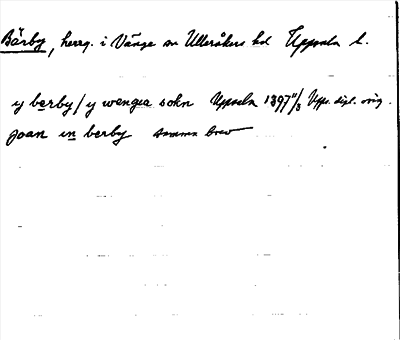 Bärby, herrg. i Vänge sn Ulleråkers hd Uppsala l.
y berby / y wengia sokn Uppsala 1397 11/3 Upps. dipl. orig.
joan in berby samma brev